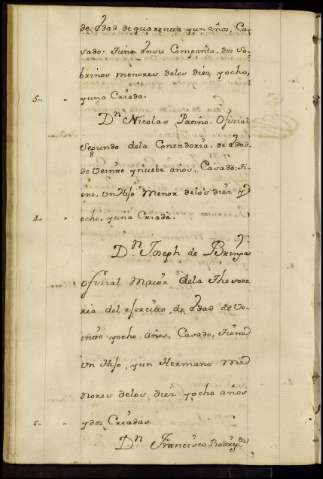 de edad de quarenta y un años, Ca-
sado: tiene en su Compañia, dos So-
brinos menores delos diez yocho,
5.. yuna Criada.
Dn Nicolas Patiño. Oficial
segundo dela Contaduria, de edad
de Veinte y nueve años, Casado: ti-
ene, un Hijo Menor delos diez y
ocho, yuna Criada.
Dn Joseph de
oficial Maior dela Thesore
ria del exercito, de edad de Ve-
inte yocho años, Casado, tiene
Un Hijo, yun Hermano Me-
Nores delos, diez yocho años
ydos Criadas.
Dn Francisco Rodrigz